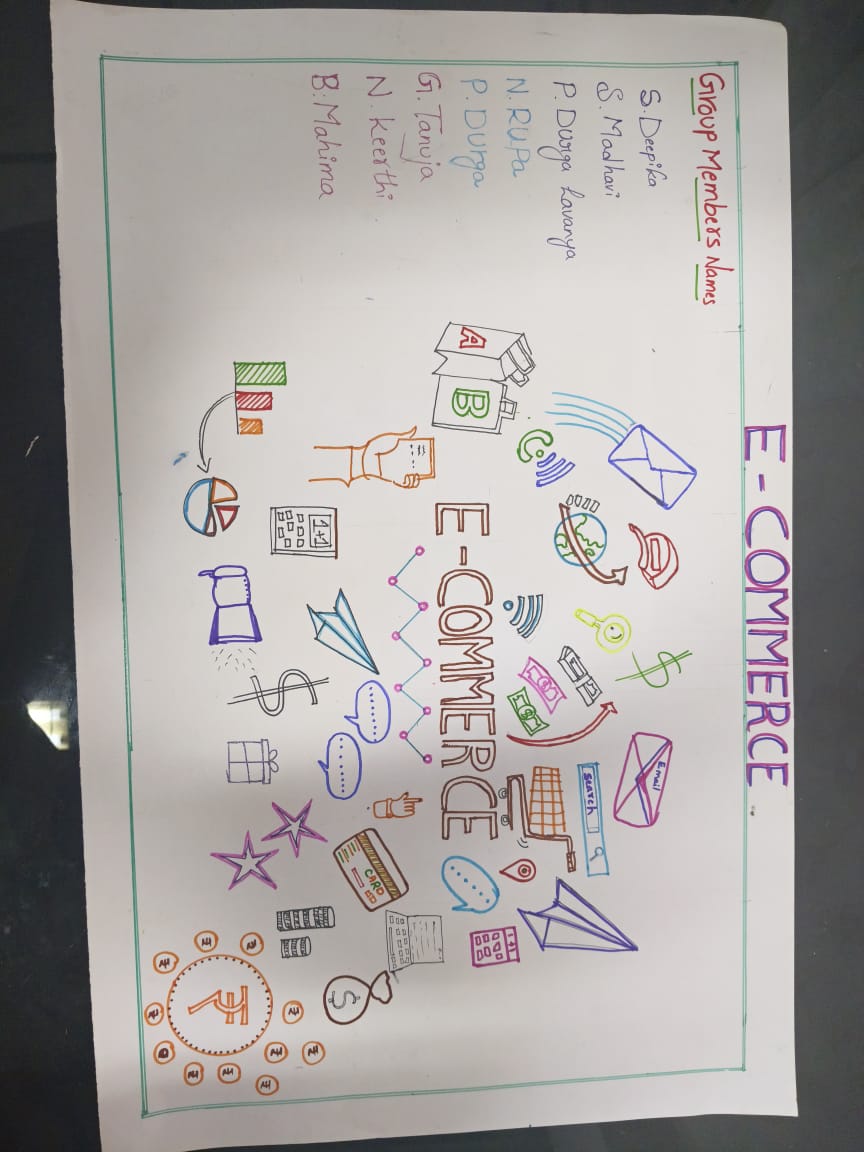 E-COMMERCE
Group Members Names
S. Deepika
S. Madhavi
P. Durga Lavanya
N. RUPa
P. DUrga
G. Tanuja
N. keerthi.
B. Mahima
A
B
1+1
E-COMMERCE
$
$
Email
Search
CARD
1+1
$
₹
₹
₹
₹
₹
₹
₹
₹
₹
₹
₹